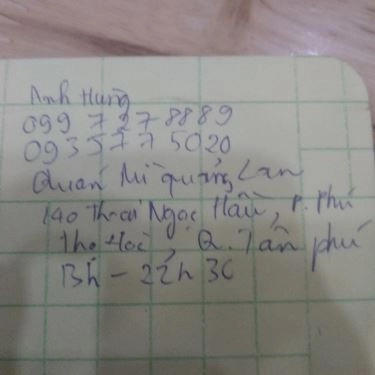 Anh Hưng
099 727 8889
0935775020
Quán Mì quảng Lan
140 Thoại Ngọc Hầu, P. Phú
Thọ Hoà Q. Tân phú
13h - 22h 30